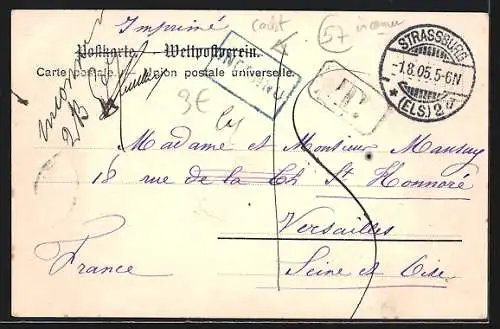 Imprimé
cadet
57
inconnu
Postkarte. — Weltpostverein.
Carte postale. Union postale universelle.
STRASSBURG
-1.8.05.5-6N
* (ELS.) 2 d
INCONNU
T
inconnu
3€
Madame et Monsieur Mansuy
18 rue de la Ch St Honnoré
Versailles
France Seine et Oise